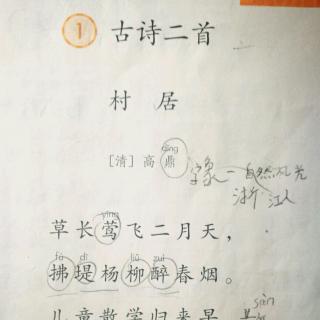 1 古诗二首
村 居
dǐng
[清] 高 鼎
一 自然风光
浙 江人
yīng
草长莺飞二月天，
fú dī liǔ zuì
拂堤杨柳醉春烟。
儿童散学归来早